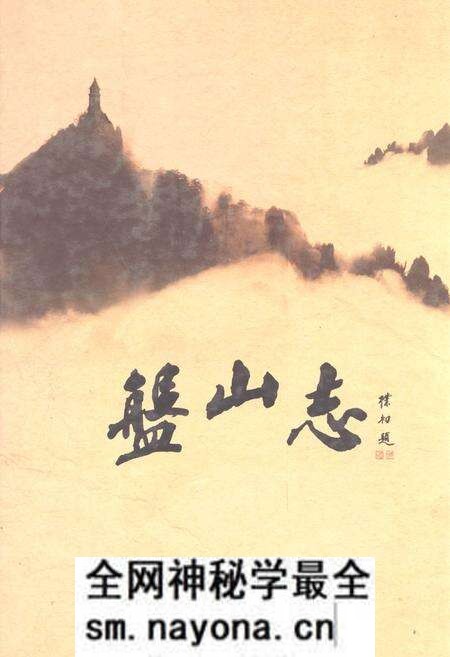 盤山志
樸初題
全网神秘学最全
sm.nayona.cn